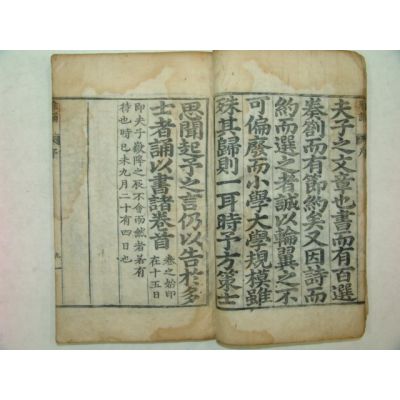 夫子之文章也書而有百選
奏劄而有節約矣又因詩而
約而選之者誠以輪翼之不
可偏廢而小學大學規模雖
殊其歸則一耳時予方策士
思聞起予之言仍以告於多
士者誦以書諸卷首
卷之始印
在十五日
即夫子歡降之辰不會而然者若有
待也時己未九月二十有四日也